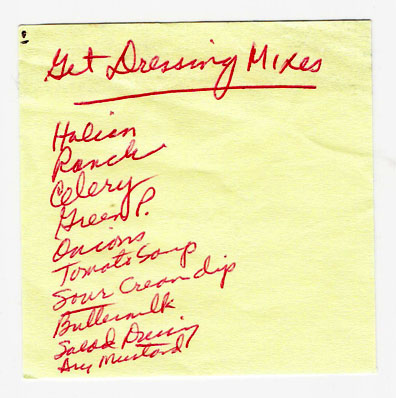 Get Dressing Mixes
Italian
Ranch
Celery
Green P.
Onions
Tomato Soup
Sour Cream dip
Buttermilk
Salad Dressing
Dry Mustard